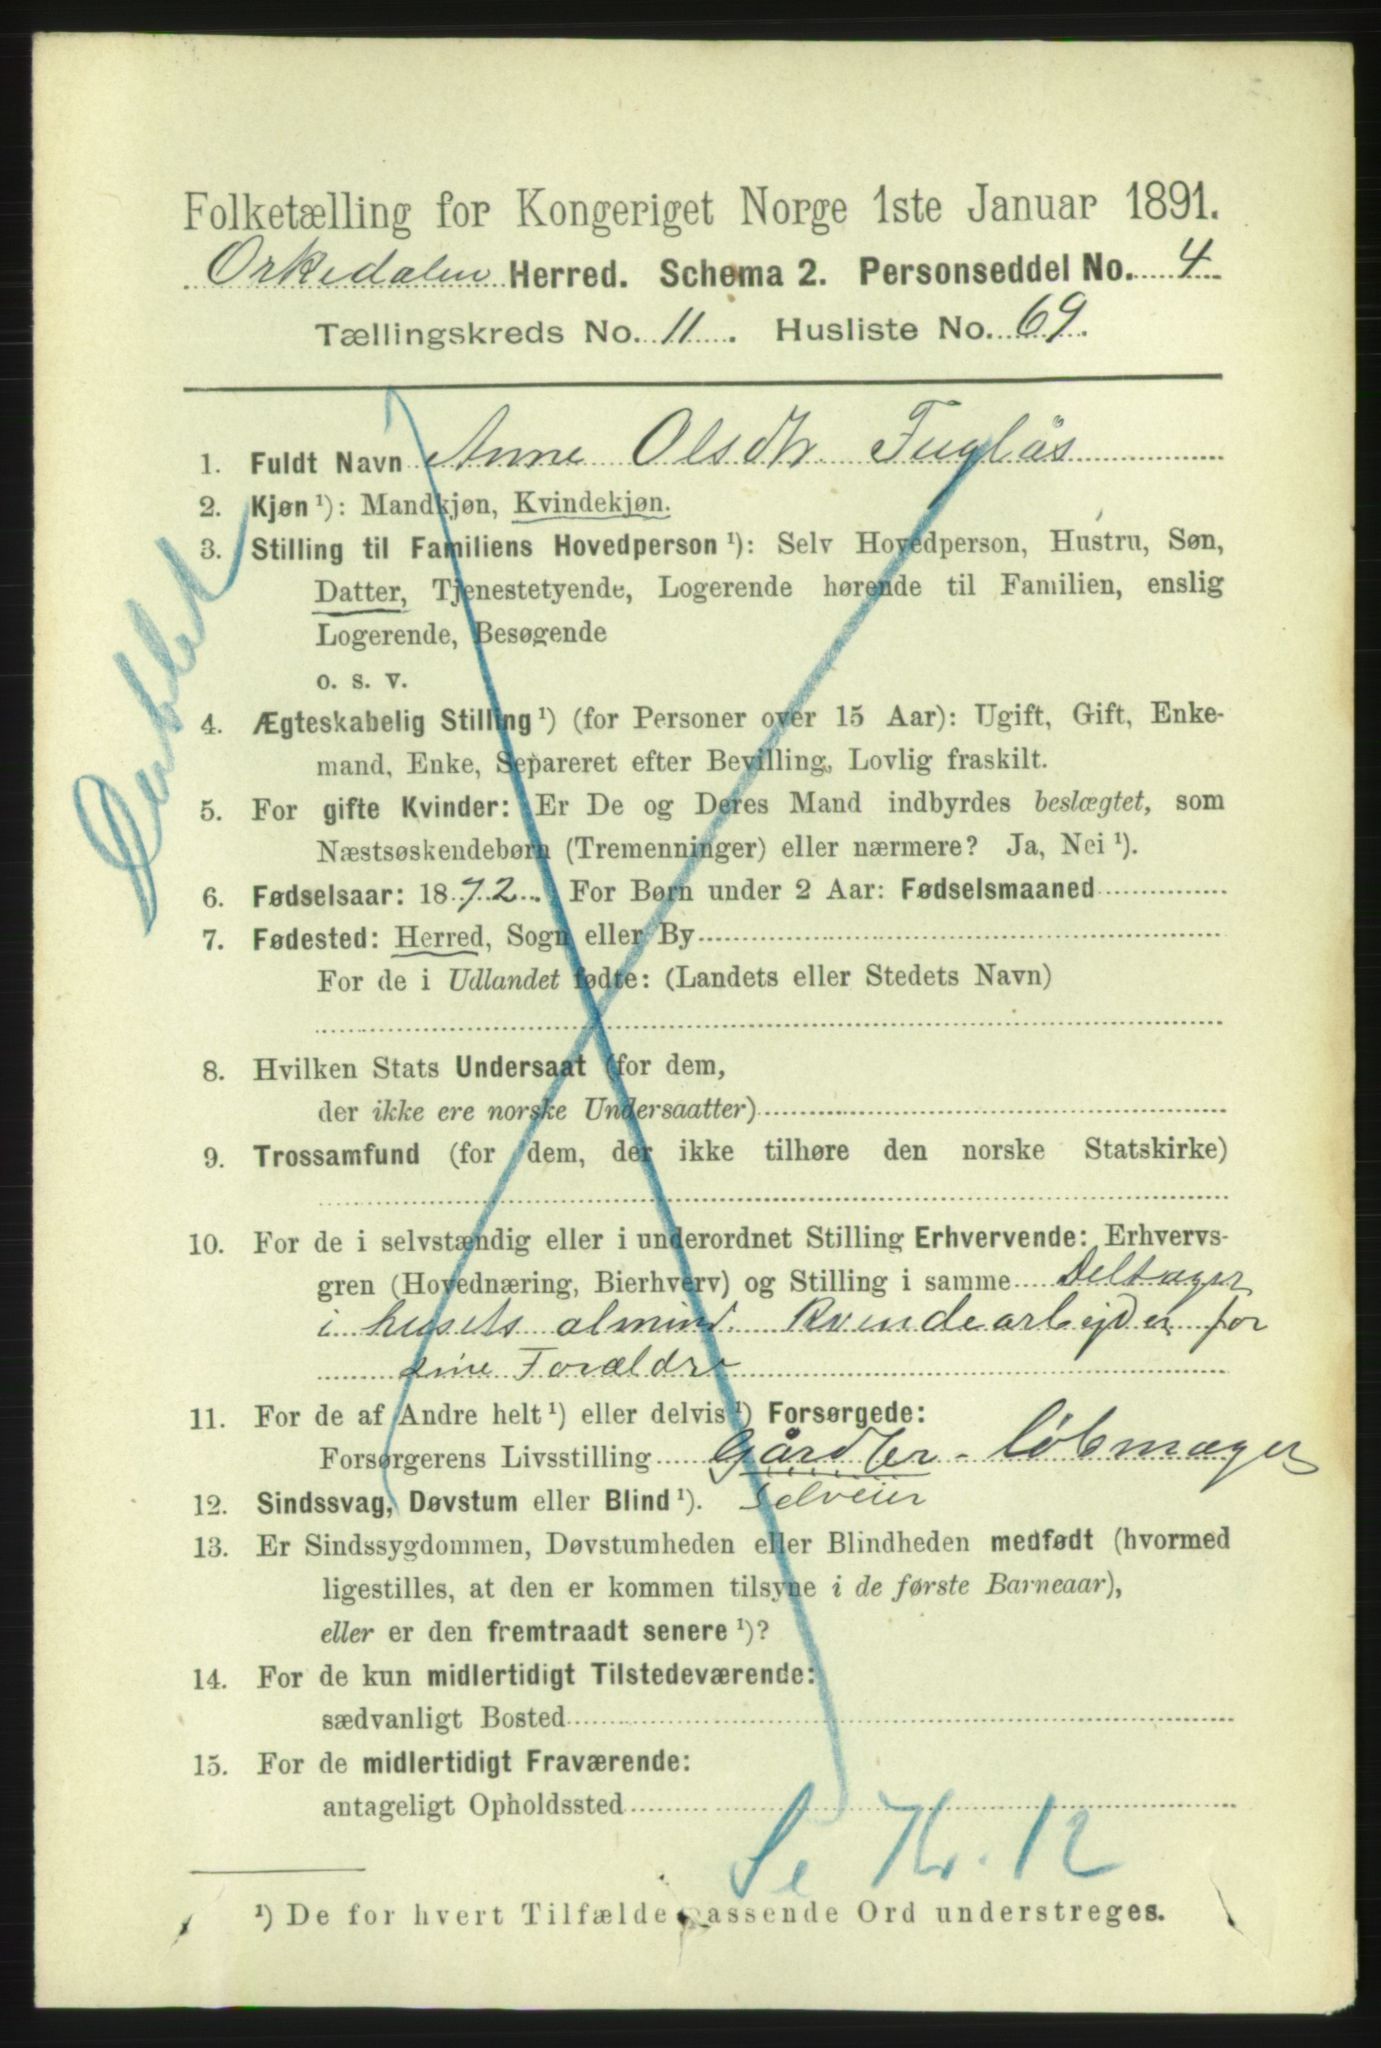 Folketælling for Kongeriget Norge 1ste Januar 1891.
Orkedalen Herred. Schema 2. Personseddel No. 4
Tællingskreds No. 11. Husliste No. 69.
1. Fuldt Navn Anne Olsdtr Fuglås
2. Kjøn ¹): Mandkjøn, Kvindekjøn.
3. Stilling til Familiens Hovedperson ¹): Selv Hovedperson, Hustru, Søn,
Datter, Tjenestetyende, Logerende hørende til Familien, enslig
Logerende, Besøgende
o. s. v.
Dublet
4. Ægteskabelig Stilling ¹) (for Personer over 15 Aar): Ugift, Gift, Enke-
mand, Enke, Separeret efter Bevilling, Lovlig fraskilt.
5. For gifte Kvinder: Er De og Deres Mand indbyrdes beslægtet, som
Næstsøskendebørn (Tremenninger) eller nærmere? Ja, Nei ¹).
6. Fødselsaar: 1872. For Børn under 2 Aar: Fødselsmaaned
7. Fødested: Herred, Sogn eller By
For de i Udlandet fødte: (Landets eller Stedets Navn)
8. Hvilken Stats Undersaat (for dem,
der ikke ere norske Undersaatter)
9. Trossamfund (for dem, der ikke tilhøre den norske Statskirke)
10. For de i selvstændig eller i underordnet Stilling Erhvervende: Erhvervs-
gren (Hovednæring, Bierhverv) og Stilling i samme Deltager
i husets almind. Kvindearbejder for
sine Forældre
11. For de af Andre helt ¹) eller delvis ¹) Forsørgede:
Forsørgerens Livsstilling Gårdbr - løbmager
Selveier
12. Sindssvag, Døvstum eller Blind ¹).
13. Er Sindssygdommen, Døvstumheden eller Blindheden medfødt (hvormed
ligestilles, at den er kommen tilsyne i de første Barneaar),
eller er den fremtraadt senere ¹)?
14. For de kun midlertidigt Tilstedeværende:
sædvanligt Bosted
15. For de midlertidigt Fraværende:
antageligt Opholdssted
Se Kr. 12
¹) De for hvert Tilfælde passende Ord understreges.